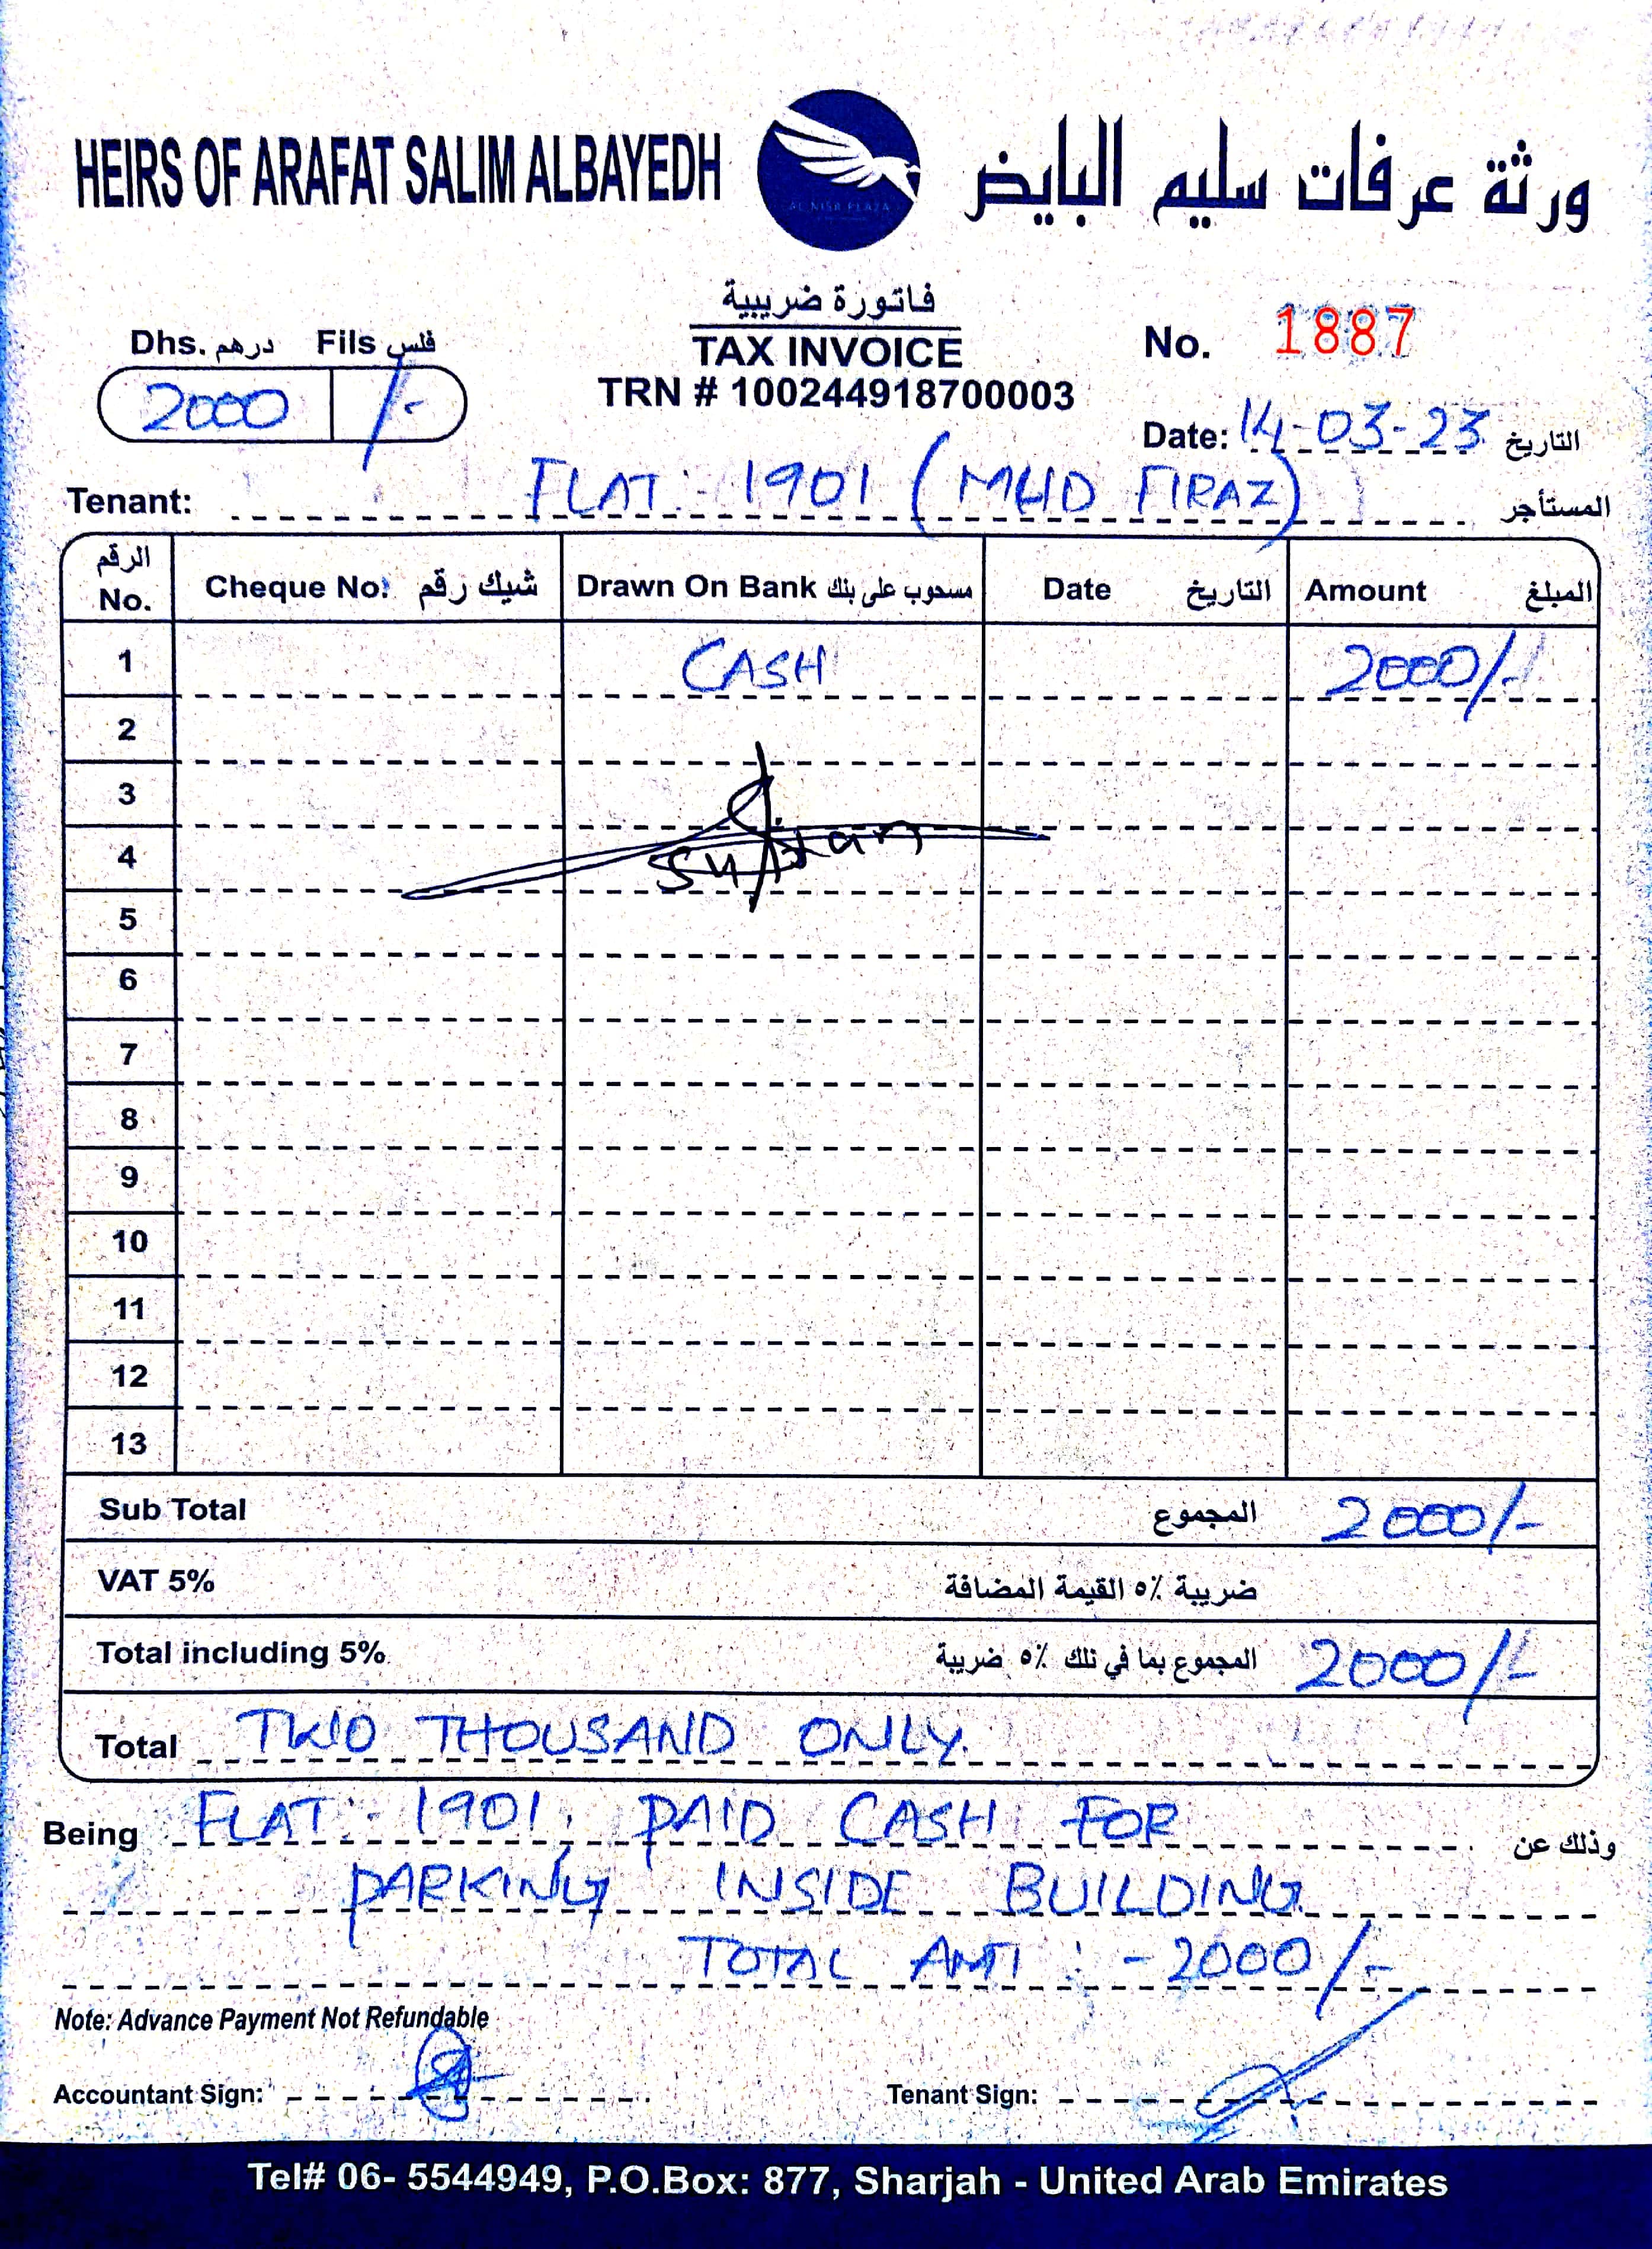 HEIRS OF ARAFAT SALIM ALBAYEDH
ورثة عرفات سليم البايض
AL NISR PLAZA
فاتورة ضريبية
TAX INVOICE
TRN # 100244918700003
Dhs. درهم Fils فلس
2000 /-
No. 1887
Date: 14-03-23 التاريخ
Tenant: FLAT:- 1901 (MHD FIRAZ) المستأجر
الرقم No. Cheque No: شيك رقم Drawn On Bank مسحوب على بنك Date التاريخ Amount المبلغ
1 CASH 2000/-
2
3
4 Sufian
5
6
7
8
9
10
11
12
13
Sub Total المجموع 2000/-
VAT 5% ضريبة ٥٪ القيمة المضافة
Total including 5% المجموع بما في تلك ٥٪ ضريبة 2000/-
Total TWO THOUSAND ONLY.
Being FLAT:- 1901, PAID CASH FOR وذلك عن
PARKING INSIDE BUILDING
TOTAL AMT :-2000/-
Note: Advance Payment Not Refundable
Accountant Sign:
Tenant Sign:
Tel# 06- 5544949, P.O.Box: 877, Sharjah - United Arab Emirates